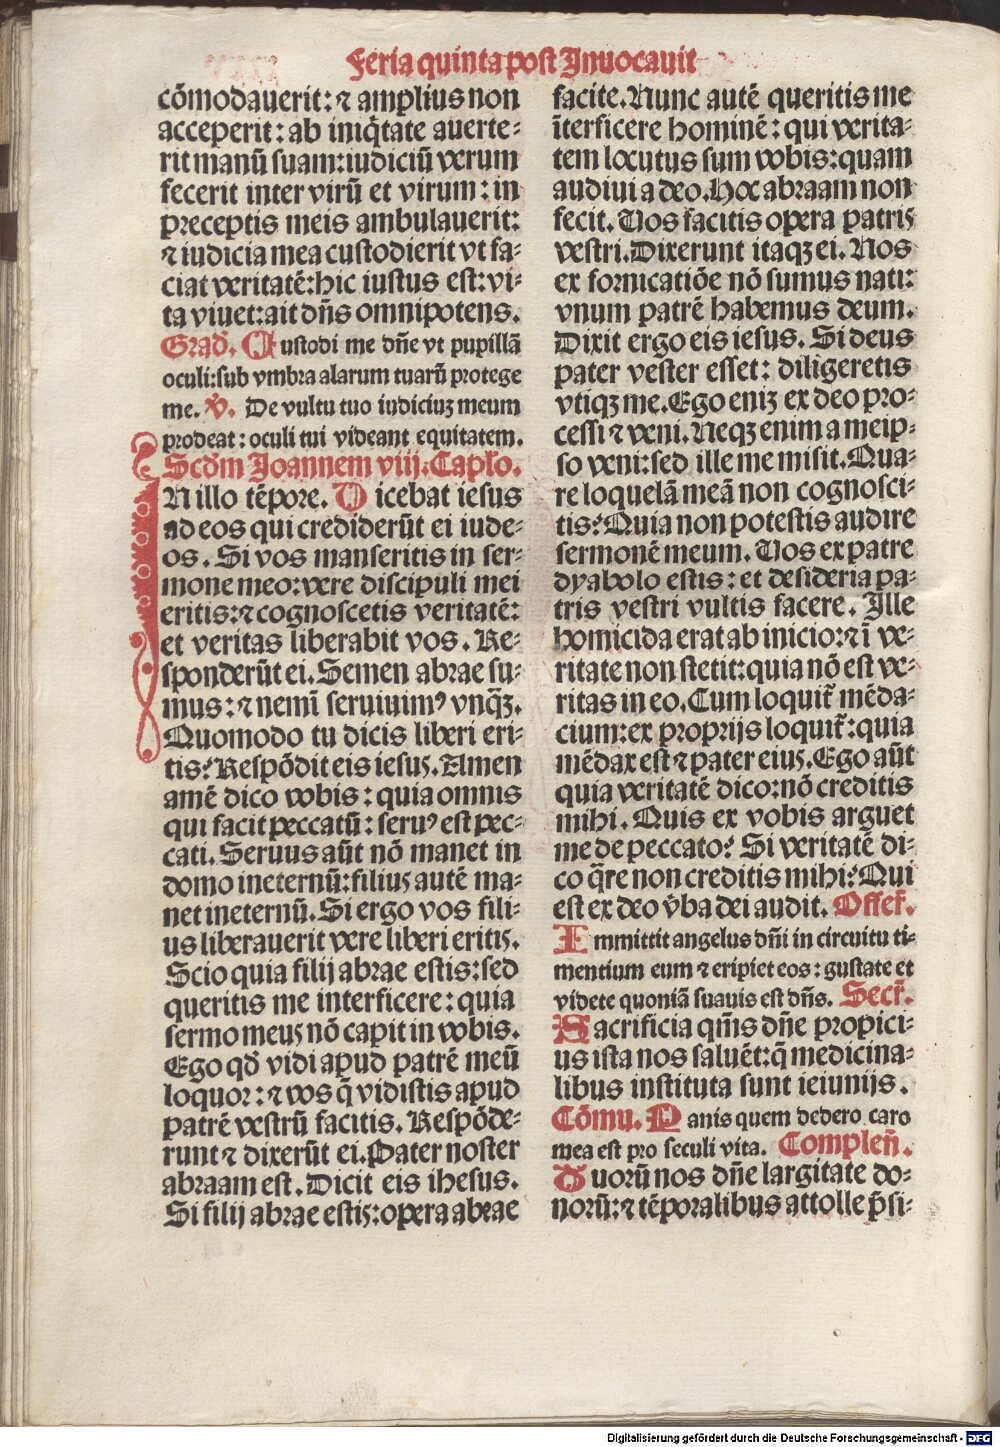 Feria quinta post Inuocauit
cōmodauerit: ⁊ amplius non
acceperit: ab iniq̄tate auerte-
rit manū suam: iudiciū verum
fecerit inter virū et virum: in
preceptis meis ambulauerit:
⁊ iudicia mea custodierit vt fa-
ciat veritatē: hic iustus est: vi-
ta viuet: ait dn̄s omnipotens.
Grad̄. Custodi me dn̄e vt pupillā
oculi: sub vmbra alarum tuarū protege
me. ℣. De vultu tuo iudiciuꝫ meum
prodeat: oculi tui videant equitatem.
Scd̄m Joannem viij. Capl̄o.
IN illo tēpore. Dicebat iesus
ad eos qui crediderūt ei iude-
os. Si vos manseritis in ser-
mone meo: vere discipuli mei
eritis: ⁊ cognoscetis veritatē:
et veritas liberabit vos. Re-
sponderūt ei. Semen abrae su-
mus: ⁊ nemī seruiuimꝰ vnq̄ꝫ.
Quomodo tu dicis liberi eri-
tis? Respōdit eis iesus. Amen
amē dico vobis: quia omnis
qui facit peccatū: seruꝰ est pec-
cati. Seruus aūt nō manet in
domo in eternū: filius autē ma-
net in eternū. Si ergo vos fili-
us liberauerit vere liberi eritis.
Scio quia filij abrae estis: sed
queritis me interficere: quia
sermo meus nō capit in vobis.
Ego qd̄ vidi apud patrē meū
loquor: ⁊ vos q̄ vidistis apud
patrē vestrū facitis. Respōde-
runt ⁊ dixerūt ei. Pater noster
abraam est. Dicit eis ihesus.
Si filij abrae estis: opera abrae
facite. Nunc autē queritis me
īterficere hominē: qui verita-
tem locutus sum vobis: quam
audiui a deo. Hoc abraam non
fecit. Vos facitis opera patris
vestri. Dixerunt itaqꝫ ei. Nos
ex fornicatiōe nō sumus nati:
vnum patrē habemus deum.
Dixit ergo eis iesus. Si deus
pater vester esset: diligeretis
vtiqꝫ me. Ego eniꝫ ex deo pro-
cessi ⁊ veni. Neqꝫ enim a meip-
so veni: sed ille me misit. Qua-
re loquelā meā non cognosci-
tis? Quia non potestis audire
sermonē meum. Vos ex patre
dyabolo estis: et desideria pa-
tris vestri vultis facere. Ille
homicida erat ab inicio: ⁊ ī ve-
ritate non stetit: quia nō est ve-
ritas in eo. Cum loquit̄ mēda-
cium: ex proprijs loquit̄: quia
mēdax est ⁊ pater eius. Ego aūt
quia veritatē dico: nō creditis
mihi. Quis ex vobis arguet
me de peccato? Si veritatē di-
co q̄re non creditis mihi? Qui
est ex deo v̄ba dei audit. Offer̄.
Immittit angelus dn̄i in circuitu ti-
mentium eum ⁊ eripiet eos: gustate et
videte quoniā suauis est dn̄s. Secr̄.
Sacrificia qm̄s dn̄e propici-
us ista nos saluēt: q̄ medicina-
libus instituta sunt ieiunijs.
Cōmu. Panis quem dedero caro
mea est pro seculi vita. Complen̄.
Tuorū nos dn̄e largitate do-
norū: ⁊ tēporalibus attolle p̄si-
Digitalisierung gefördert durch die Deutsche Forschungsgemeinschaft - DFG